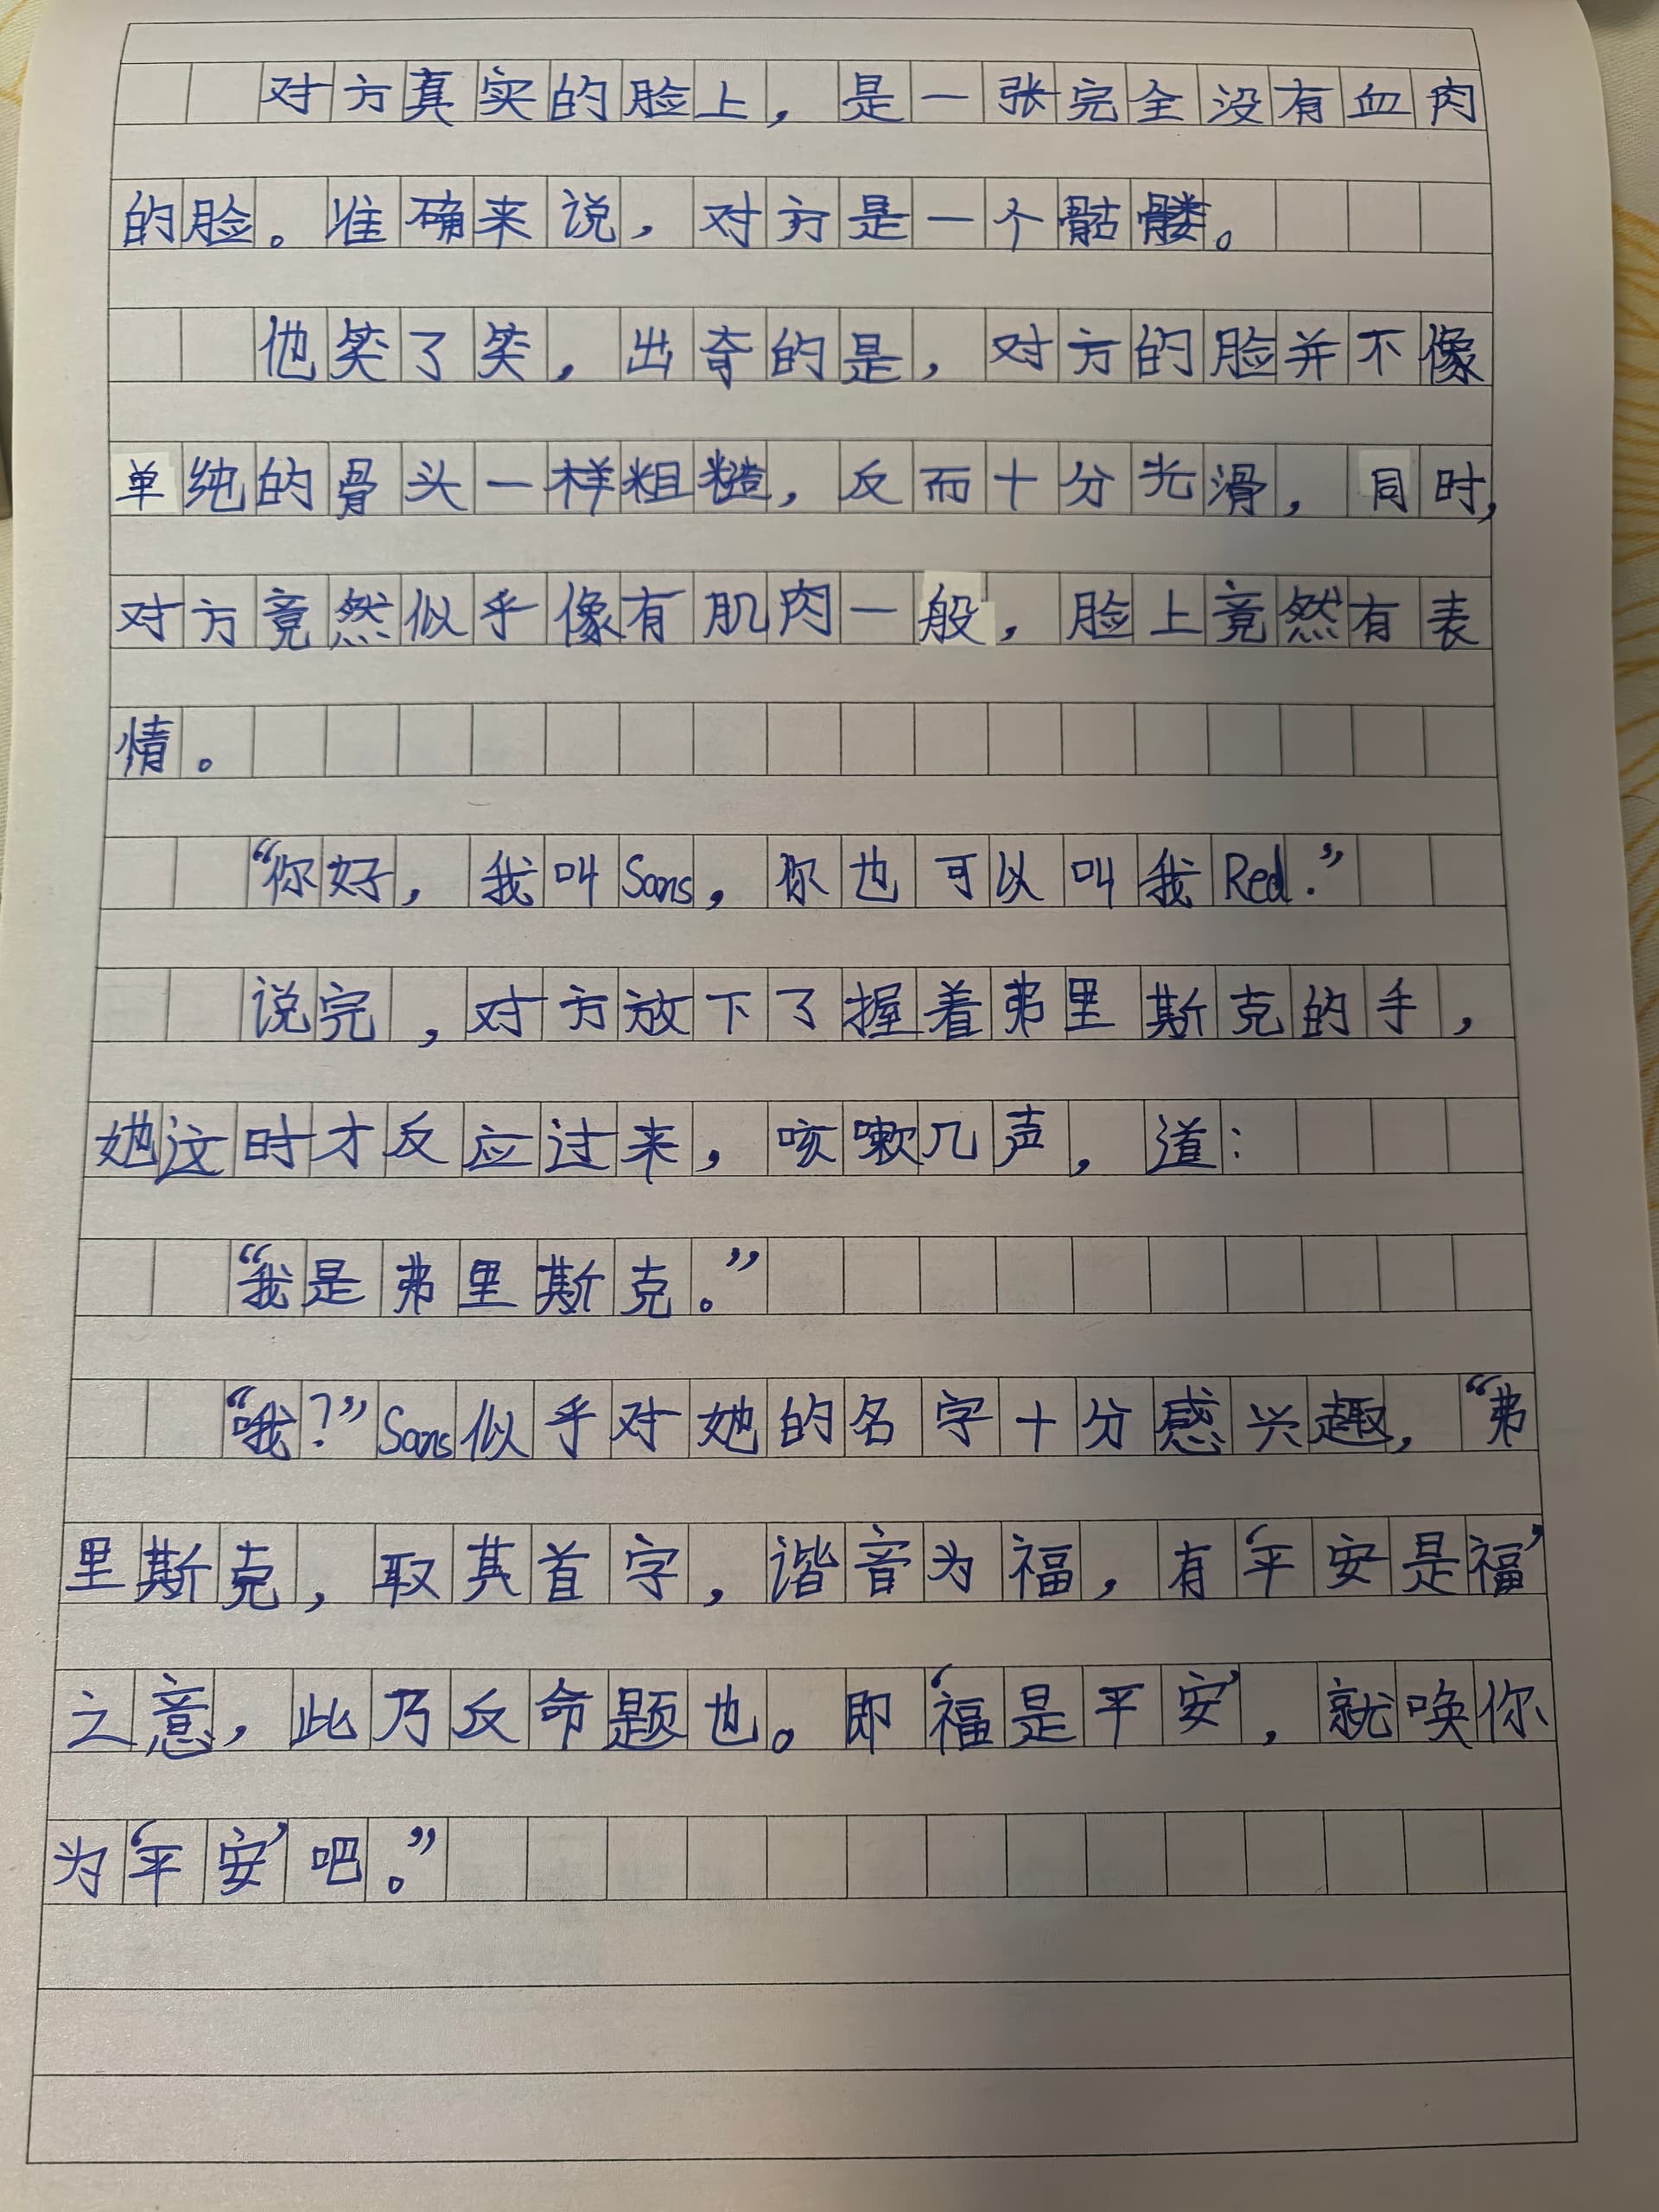 对方真实的脸上，是一张完全没有血肉
的脸。准确来说，对方是一个骷髅。
他笑了笑，出奇的是，对方的脸并不像
单纯的骨头一样粗糙，反而十分光滑，同时，
对方竟然似乎像有肌肉一般，脸上竟然有表
情。
“你好，我叫Sans，你也可以叫我Red.”
说完，对方放下了握着弗里斯克的手，
她这时才反应过来，咳嗽几声，道：
“我是弗里斯克。”
“哦？”Sans似乎对她的名字十分感兴趣，“弗
里斯克，取其首字，谐音为福，有‘平安是福’
之意，此乃反命题也。即‘福是平安’，就唤你
为‘平安’吧。”